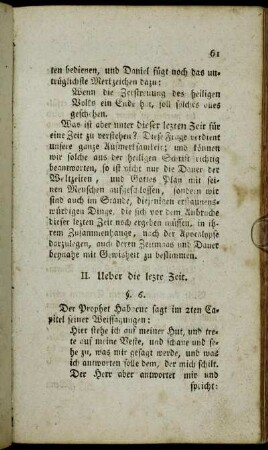 61
ten bedienen, und Daniel fügt noch das un-
trüglichste Merkzeichen dazu:
Wenn die Zerstreuung des heiligen
Volks ein Ende hat, soll solches alles
geschehen.
Was ist aber unter dieser lezten Zeit für
eine Zeit zu verstehen? Diese Frage verdient
unsere ganze Aufmerksamkeit; und können
wir solche aus der heiligen Schrift richtig
beantworten, so ist nicht nur die Dauer der
Weltzeiten, und Gottes Plan mit sei-
nen Menschen aufgeschlossen, sondern wir
sind auch im Stande, diejenigen erstaunens-
würdigen Dinge, die sich vor dem Anbruche
dieser lezten Zeit noch ergeben müssen, in ih-
rem Zusammenhange, nach der Apocalypse
darzulegen, auch deren Zeitmaas und Dauer
beynahe mit Gewisheit zu bestimmen.
II. Ueber die lezte Zeit.
§. 6.
Der Prophet Habacuc sagt im 2ten Ca-
pitel seiner Weissagungen:
Hier stehe ich auf meiner Hut, und tre-
te auf meine Veste, und schaue und se-
he zu, was mir gesagt werde, und was
ich antworten solle dem, der mich schilt.
Der Herr aber antwortet mir und
spricht: